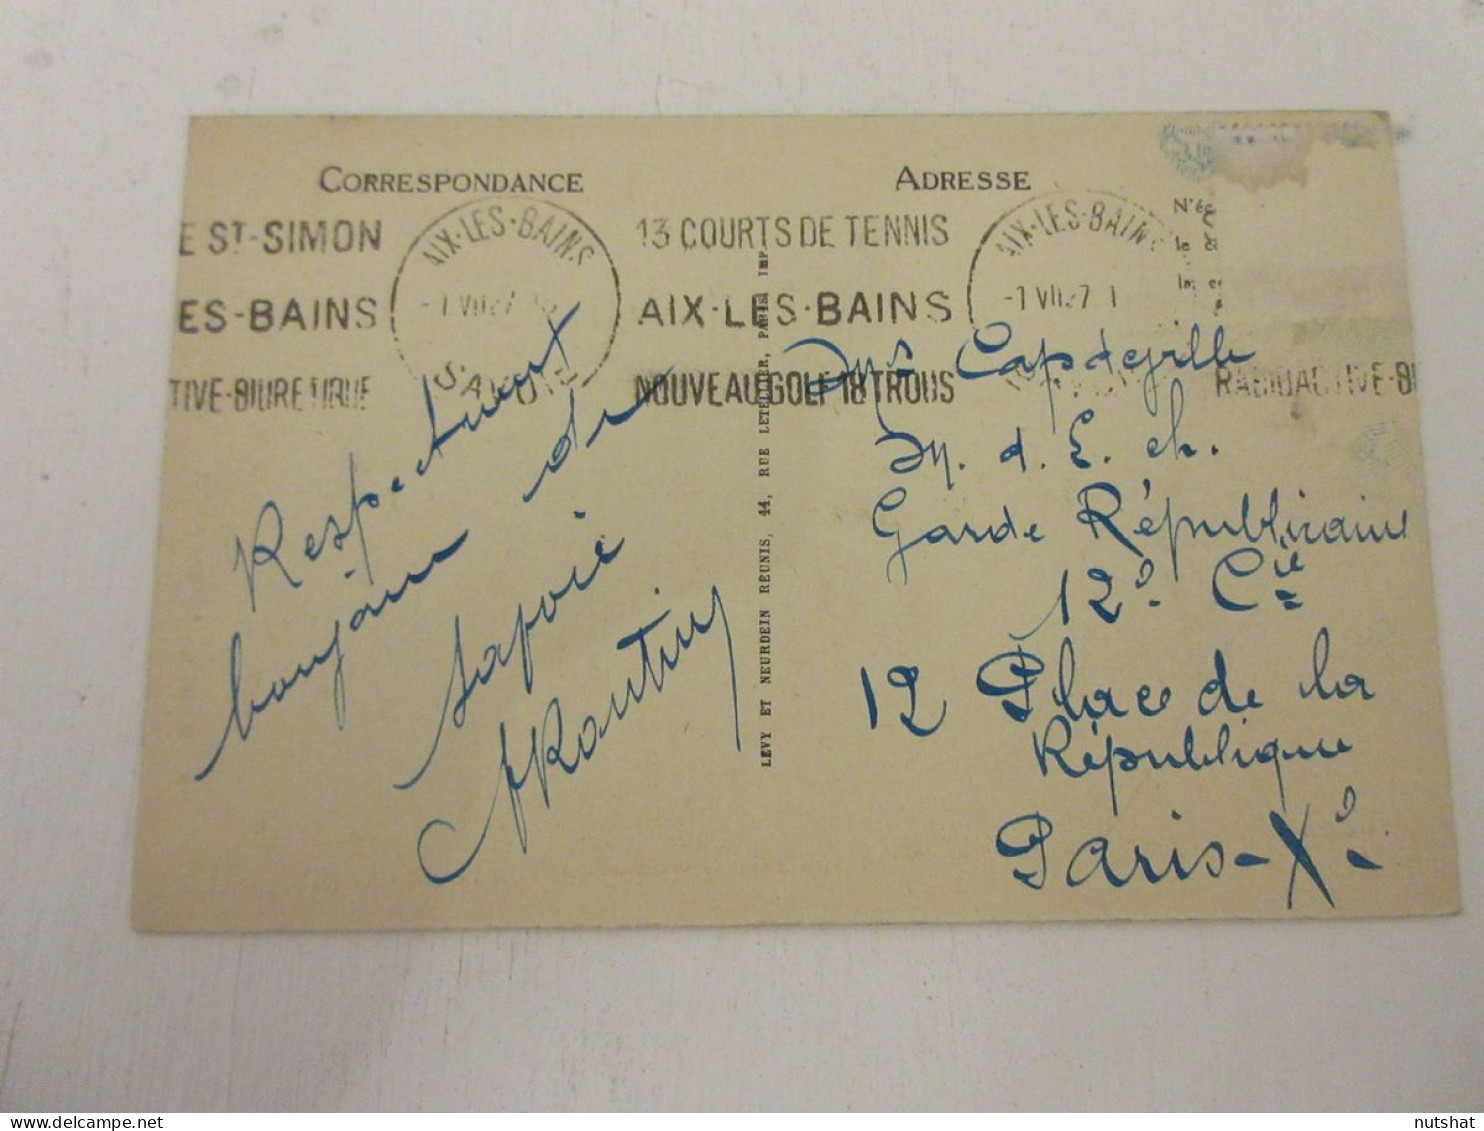 CORRESPONDANCE
ADRESSE
E ST-SIMON
ES-BAINS
TIVE-DIURETIQUE
AIX-LES-BAINS
-1 VII 27
SAVOIE
13 COURTS DE TENNIS
AIX-LES-BAINS
NOUVEAU GOLF 18 TROUS
AIX-LES-BAINS
-1 VII 27
RADIOACTIVE-DI
LEVY ET NEURDEIN REUNIS, 44, RUE LETELLIER, PARIS IMP
Respectueux
bonjour de
Savoie
Capdeville
M. d. E. ch.
Garde Républicaine
12e Cie
12 Place de la
République
Paris-Xe
nutshat